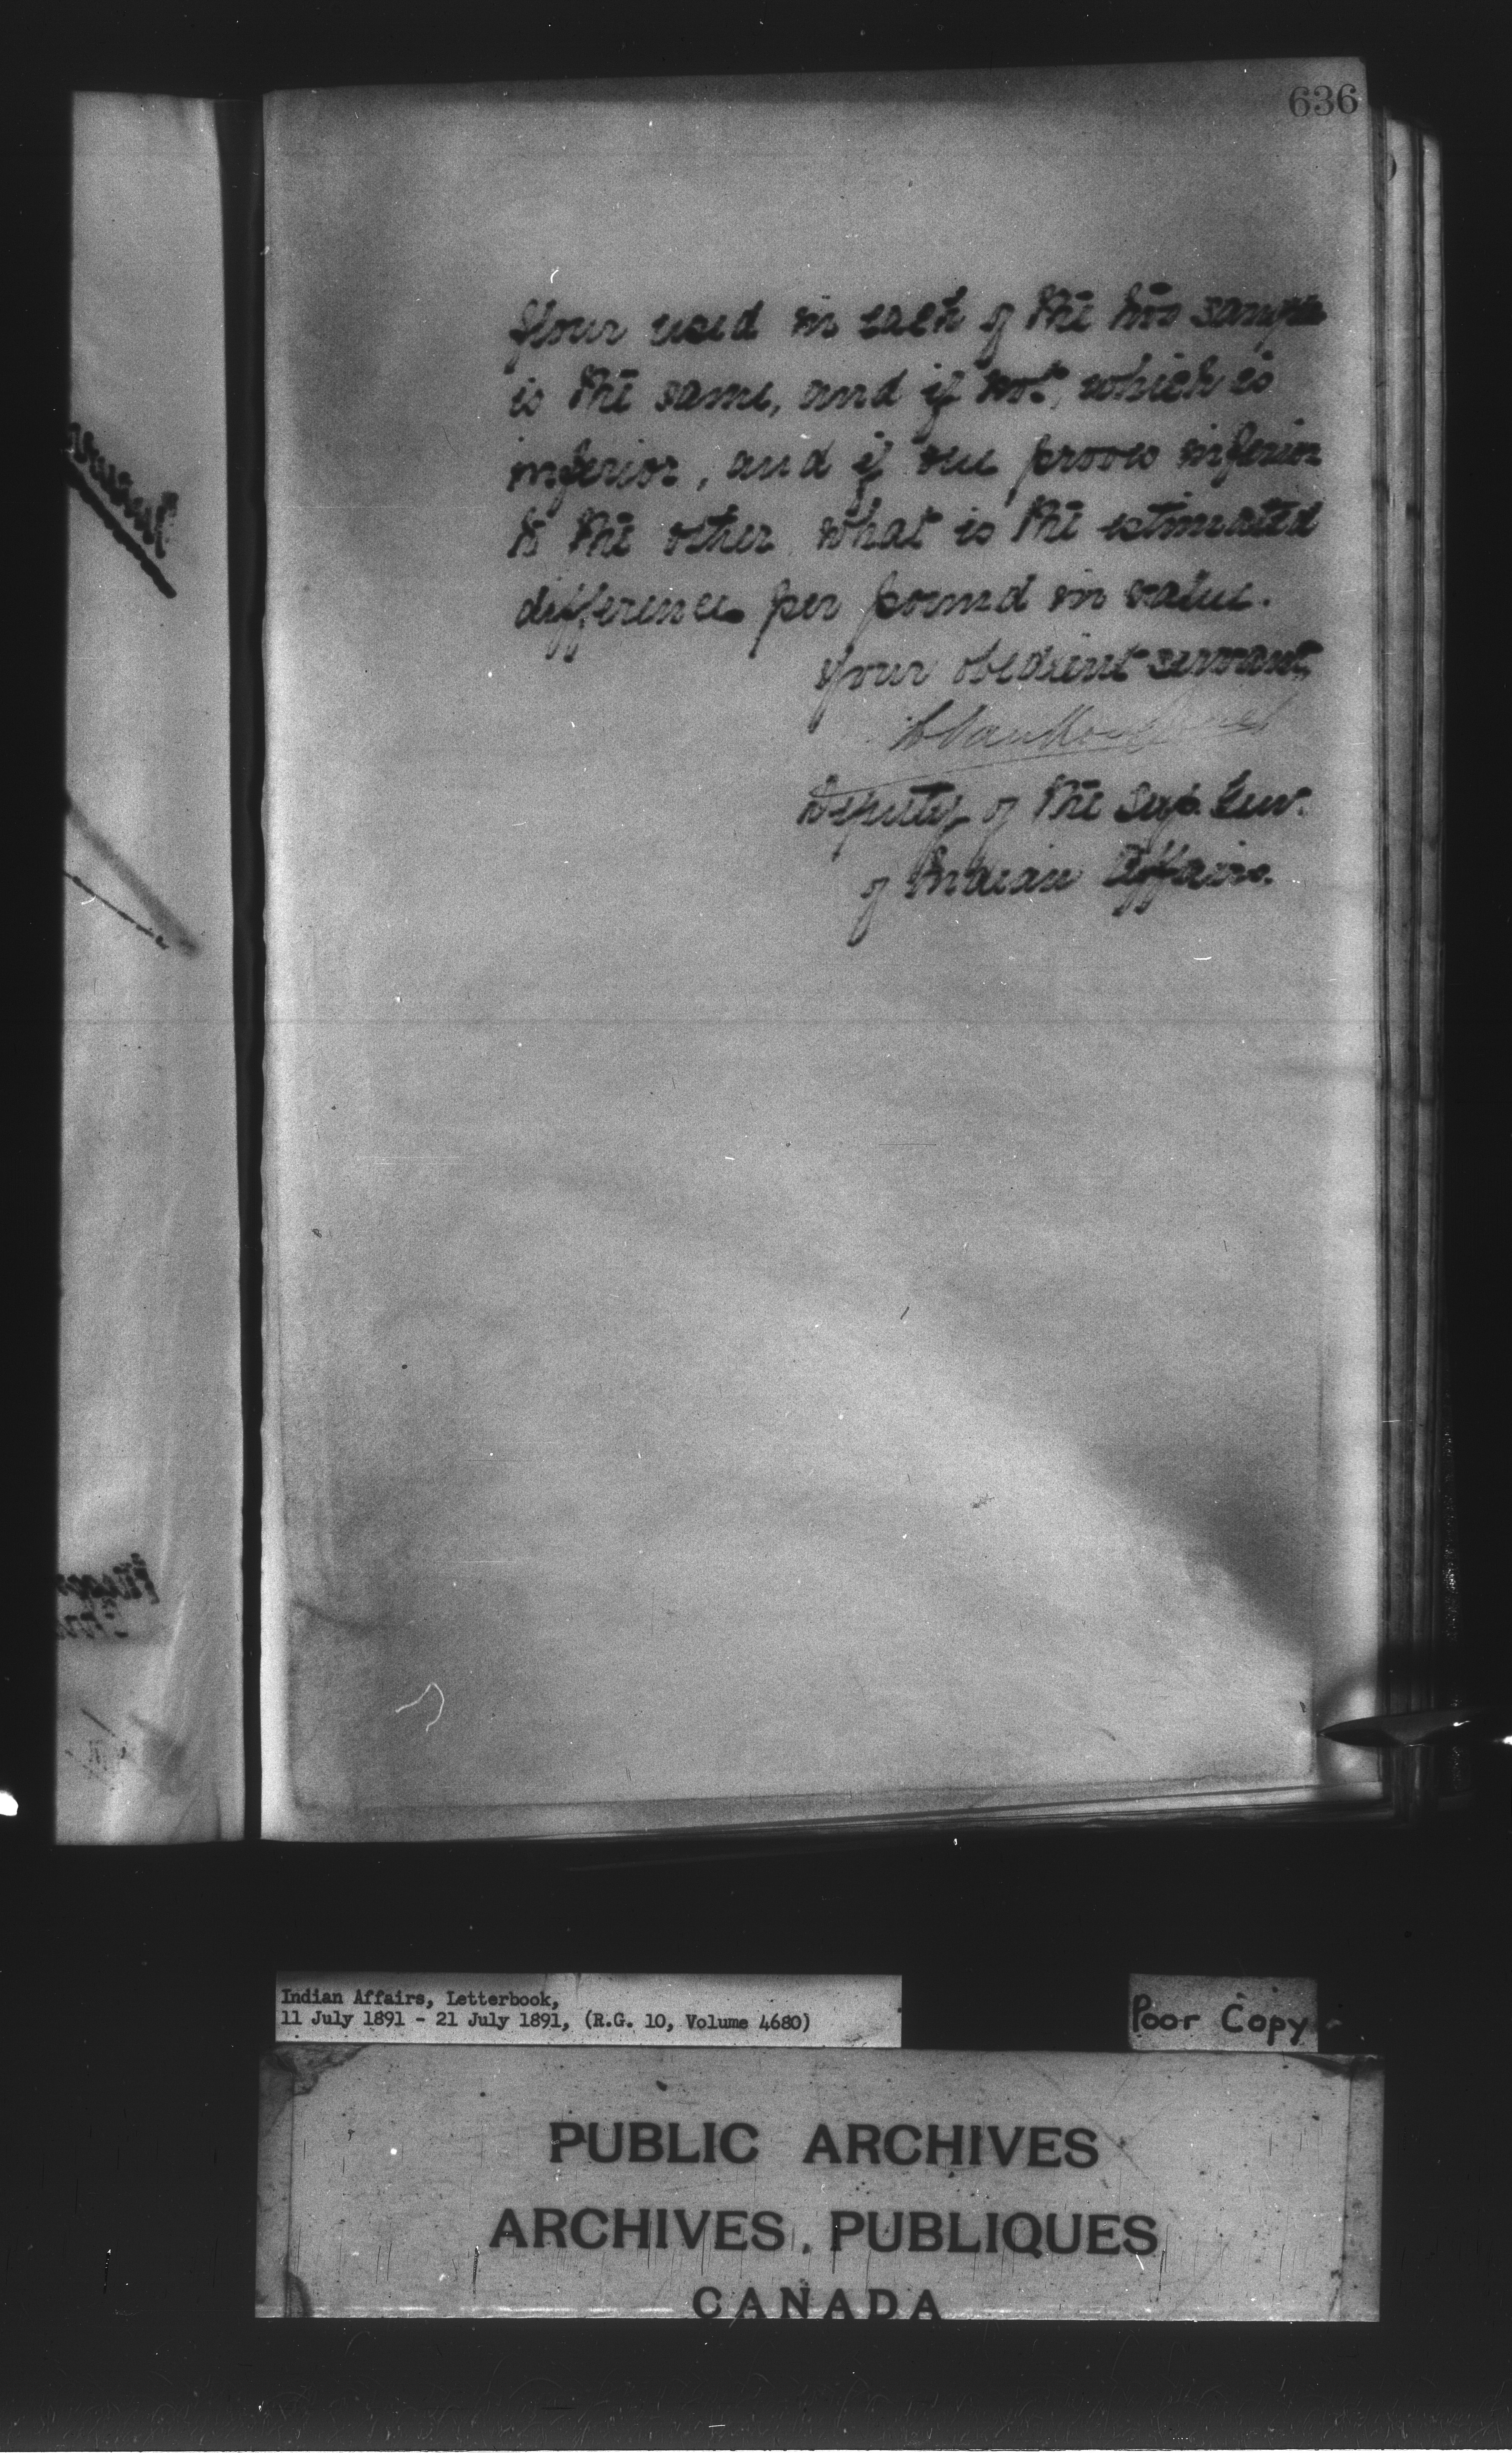 636
flour used in each of the two samples
is the same, and if not, which is
inferior, and if one proves inferior
to the other what is the estimated
difference per pound in value.
Your obedient servant,
L Vankoughnet
Deputy of the Sup. Gen.
of Indian Affairs.
Indian Affairs, Letterbook,
11 July 1891 - 21 July 1891, (R.G. 10, Volume 4680)
Poor Copy
PUBLIC ARCHIVES
ARCHIVES PUBLIQUES
CANADA